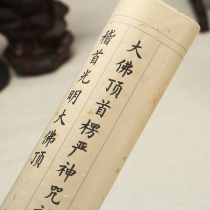 大佛顶首楞严神咒
稽首光明大佛顶